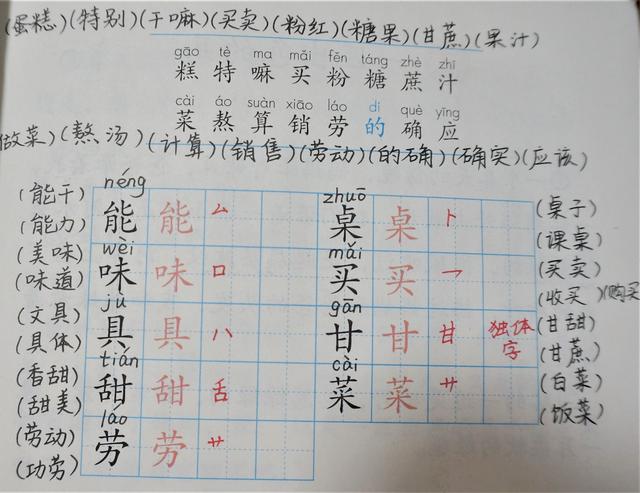 (蛋糕)(特别)(干嘛)(买卖)(粉红)(糖果)(甘蔗)(果汁)
gāo tè ma mǎi fěn táng zhè zhī
糕 特 嘛 买 粉 糖 蔗 汁
cài áo suàn xiāo láo dí què yīng
菜 熬 算 销 劳 的 确 应
做菜)(熬汤)(计算)(销售)(劳动)(的确)(确实)(应该)
(能干)
(能力)
néng
能 能 厶
zhuō
桌 桌 卜
(桌子)
(课桌)
(美味)
(味道)
wèi
味 味 口
mǎi
买 买 乛
(买卖)
(收买)(购买
(文具)
(具体)
jù
具 具 八
gān
甘 甘 甘 独体字
(甘甜)
(甘蔗)
(香甜)
(甜美)
tián
甜 甜 舌
cài
菜 菜 艹
(白菜)
(饭菜)
(劳动)
(功劳)
láo
劳 劳 艹